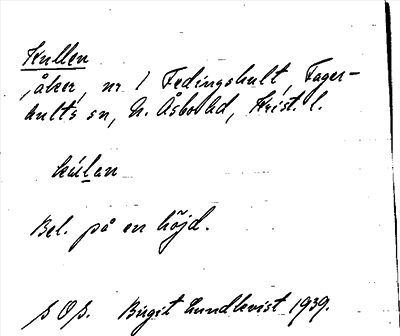 Kullen
, åker, nr 1 Fedingshult, Fager-
hults sn, N. Åsbo hd, Krist. l.
kúlan
Bel. på en höjd.
S O S. Birgit Lundkvist 1939.